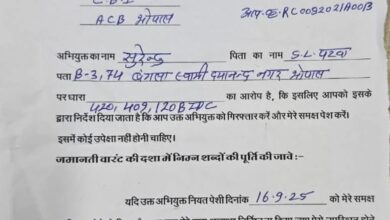 C-B-I
ACB भोपाल
आप.क्र. RC0092021A0013
अभियुक्त का नाम सुरेन्द्र पिता का नाम S.L. पटवा
पता B-3, 74 बंगला स्वामी दयानन्द नगर भोपाल
पर धारा 420, 409, 120B IPC
का आरोप है, कि इसलिए आपको इसके
द्वारा निर्देश दिया जाता है कि आप उक्त अभियुक्त को गिरफ्तार करें और मेरे समक्ष पेश करें।
इसमें कोई उपेक्षा नहीं होनी चाहिए।
जमानती वारंट की दशा में निम्न शब्दों की पूर्ति की जावे :-
यदि उक्त अभियुक्त नियत पेशी दिनांक 16.9.25 को मेरे समक्ष